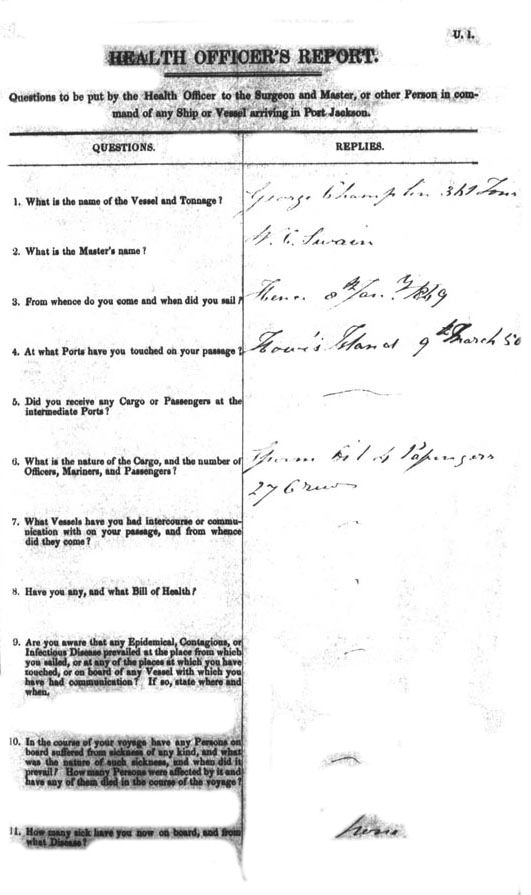 U. 1.
HEALTH OFFICER'S REPORT.
Questions to be put by the Health Officer to the Surgeon and Master, or other Person in com-
mand of any Ship or Vessel arriving in Port Jackson.
QUESTIONS.
REPLIES.
1. What is the name of the Vessel and Tonnage?
George Champlin 361 Tons
2. What is the Master's name?
Swain
3. From whence do you come and when did you sail?
8th Jany 1849
4. At what Ports have you touched on your passage?
Howe's Island 9th March 50
5. Did you receive any Cargo or Passengers at the
intermediate Ports?
6. What is the nature of the Cargo, and the number of
Officers, Mariners, and Passengers?
Sperm Oil 4 Passengers
27 Crew
7. What Vessels have you had intercourse or commu-
nication with on your passage, and from whence
did they come?
8. Have you any, and what Bill of Health?
9. Are you aware that any Epidemical, Contagious, or
Infectious Disease prevailed at the place from which
you sailed, or at any of the places at which you have
touched, or on board of any Vessel with which you
have had communication? If so, state where and
when.
10. In the course of your voyage have any Persons on
board suffered from sickness of any kind, and what
was the nature of such sickness, and when did it
prevail? How many Persons were affected by it and
have any of them died in the course of the voyage?
11. How many sick have you now on board, and from
what Disease?
None